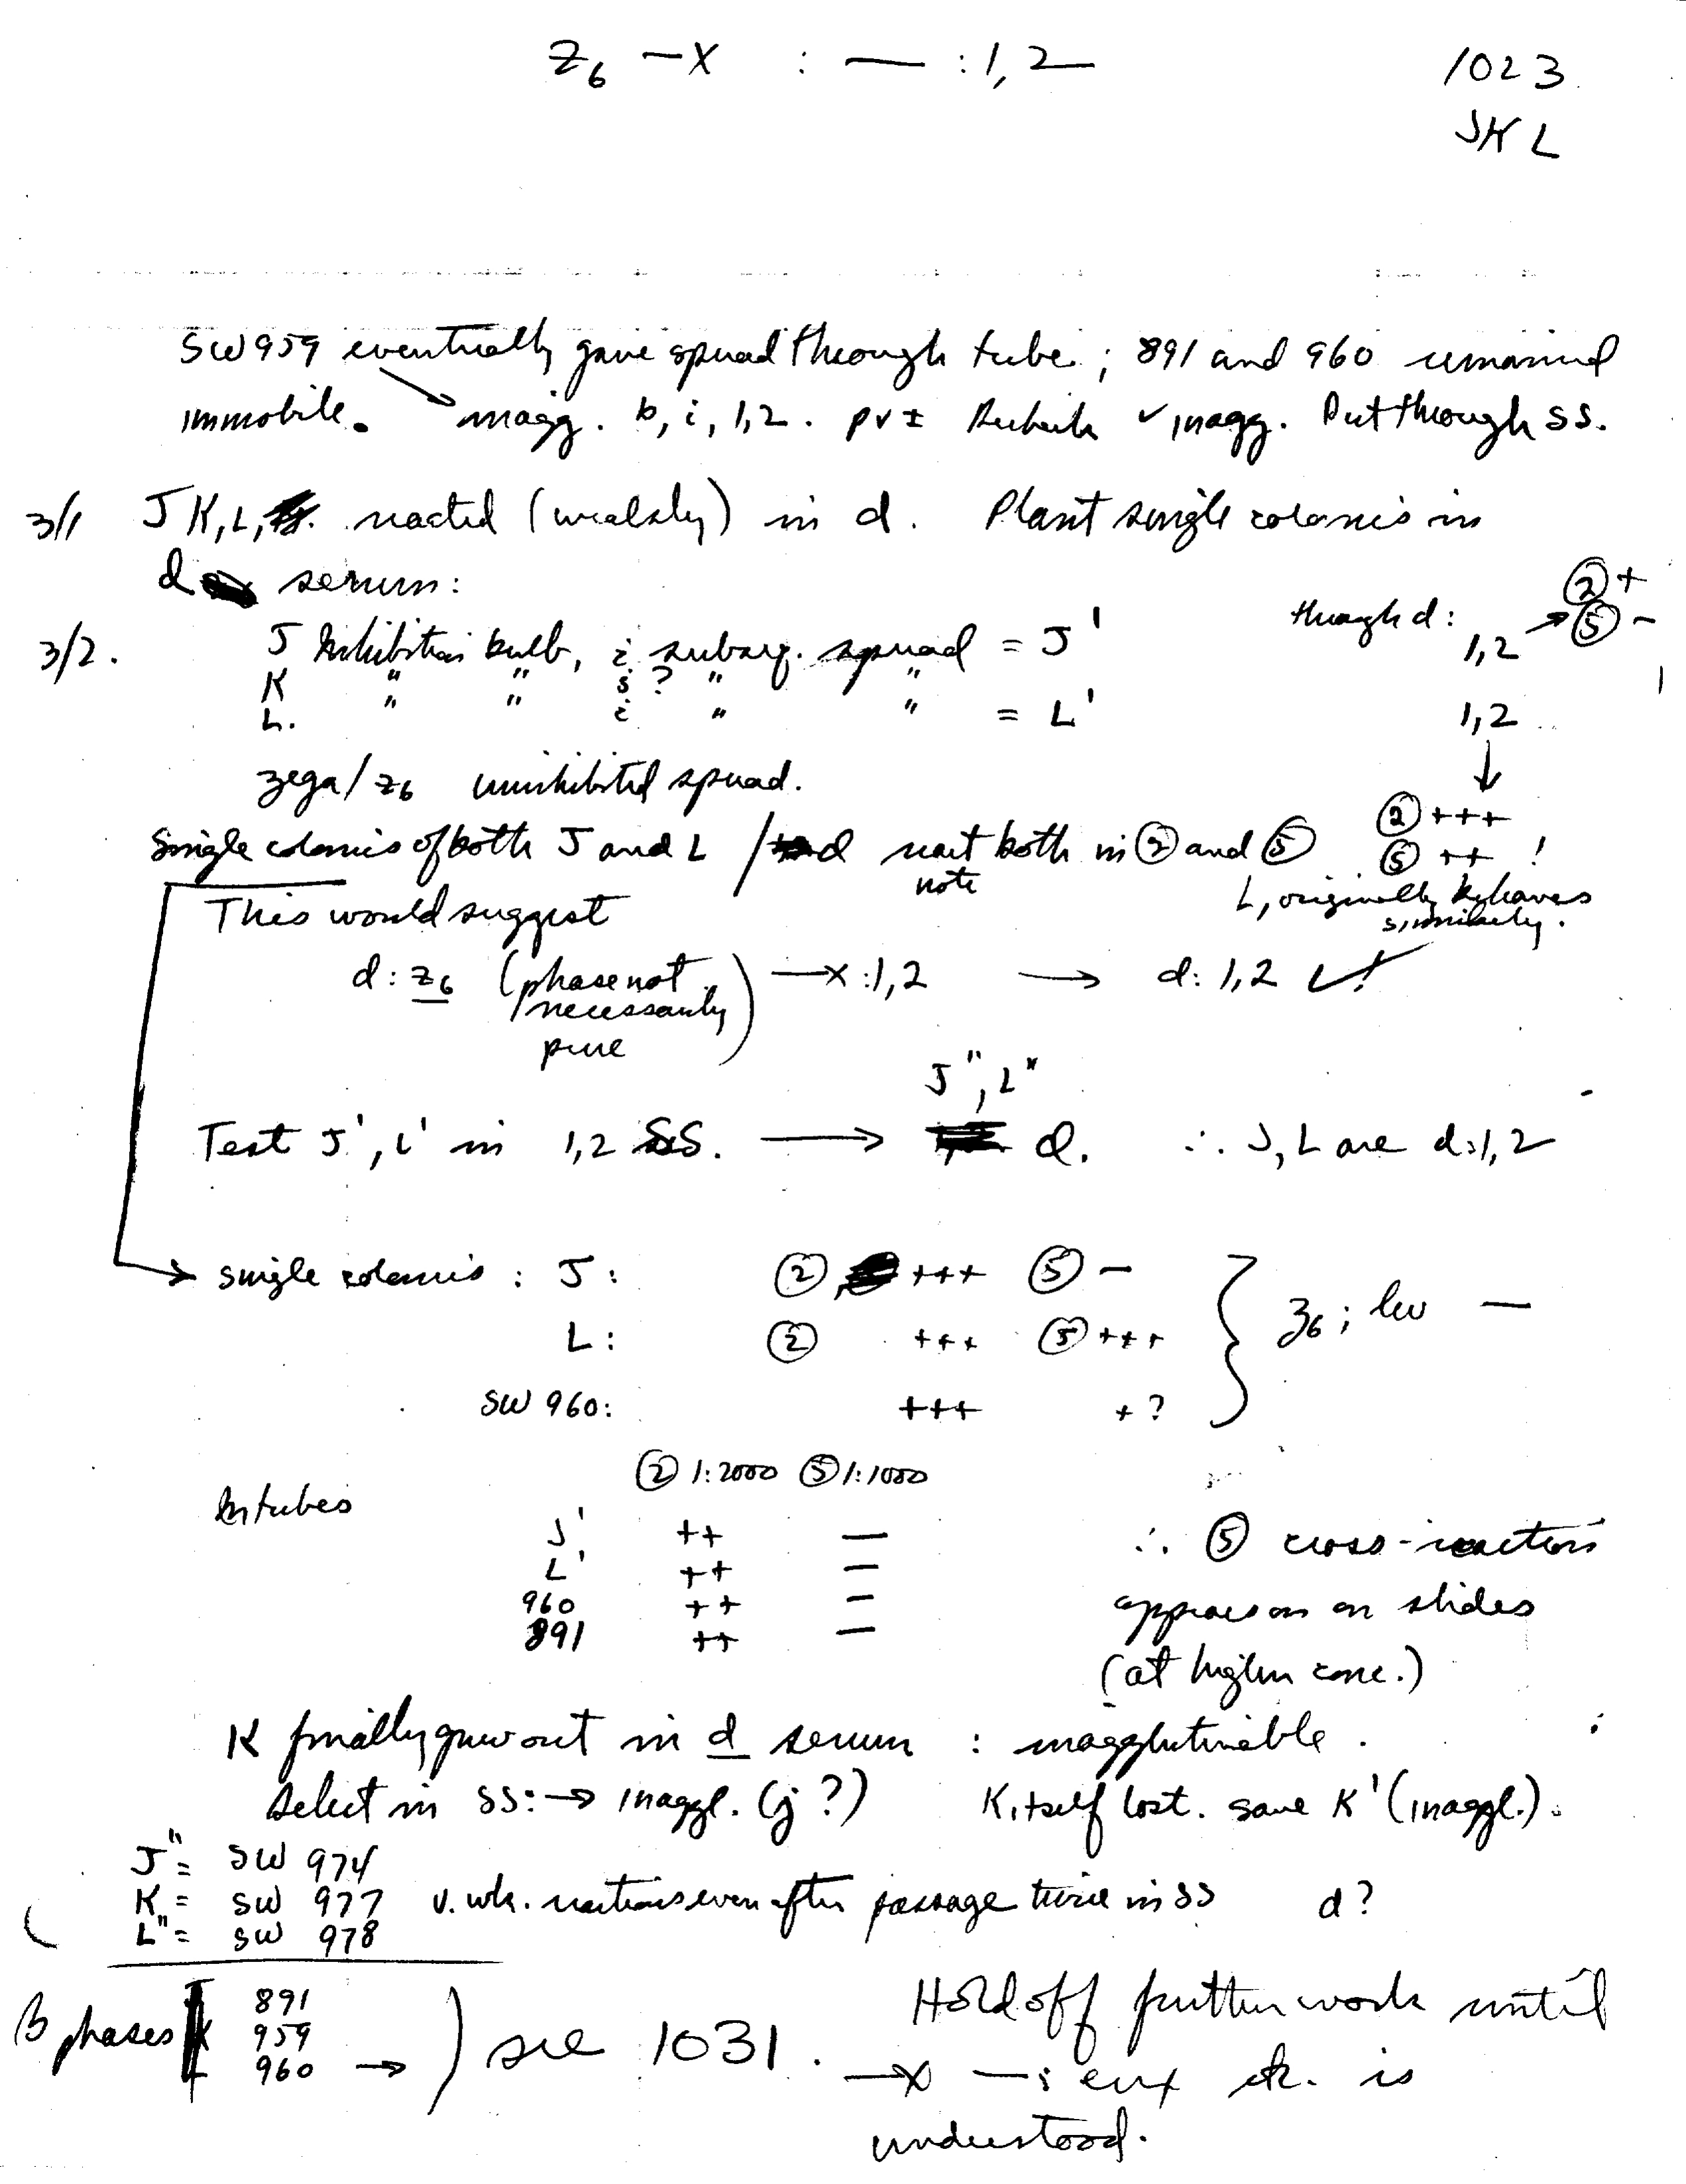 z6 —x : — : 1,2
1023
JKL
SW959 eventually gave spread through tube; 891 and 960 remained
immobile. inagg. b, i, 1,2. pv ± ✓ inagg. Put through SS.
3/1 J K, L, reacted (weakly) in d. Plant single colonies in
d serum:
3/2. J Inhibition bulb, c̄ subseq. spread = J'
K " " s̄? " "
L. " " c̄ " " = L'
though d:
1,2 → ② +
⑤ −
1,2
↓
② +++
⑤ ++ !
zega/z6 uninhibited spread.
Single colonies of both J and L /d react both in ② and ⑤
note
L, originally behaves
similarly.
This would suggest
d: z6 (phase not
necessarily
pure) —x :1,2 → d: 1,2 ✓!
J", L"
Test J', L' in 1,2 SS. → d. ∴ J, L are d:1,2
→ single colonies: J: ② +++ ⑤ −
L: ② +++ ⑤ +++
SW 960: +++ +?
} z6; lw —
② 1:2000 ⑤ 1:1000
In tubes
J' ++ —
L' ++ —
960 ++ —
891 ++ —
∴ ⑤ cross-reaction
appears on on slides
(at higher conc.)
K finally grew out in d serum : inagglutinable.
Select in SS: → inaggl. (j?) K itself lost. Save K' (inaggl.).
J" = SW 974
K = SW 977 v. wk. reactions even after passage twice in SS d?
L" = SW 978
B phases 891
959
960 → ) see 1031.
Hold off further work until
—x —: enx etc. is
understood.